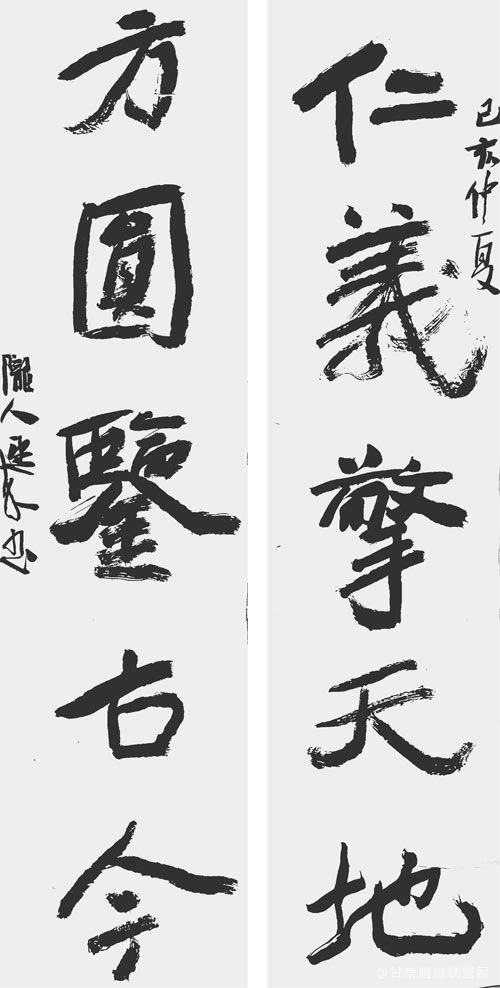 己亥仲夏
仁義擎天地
方圓鑒古今
隴人书